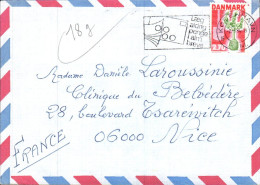 188
DANMARK
Madame Danièle Laroussinie
Clinique du Belvédère
28, boulevard Tzarévitch
06000 Nice
FRANCE